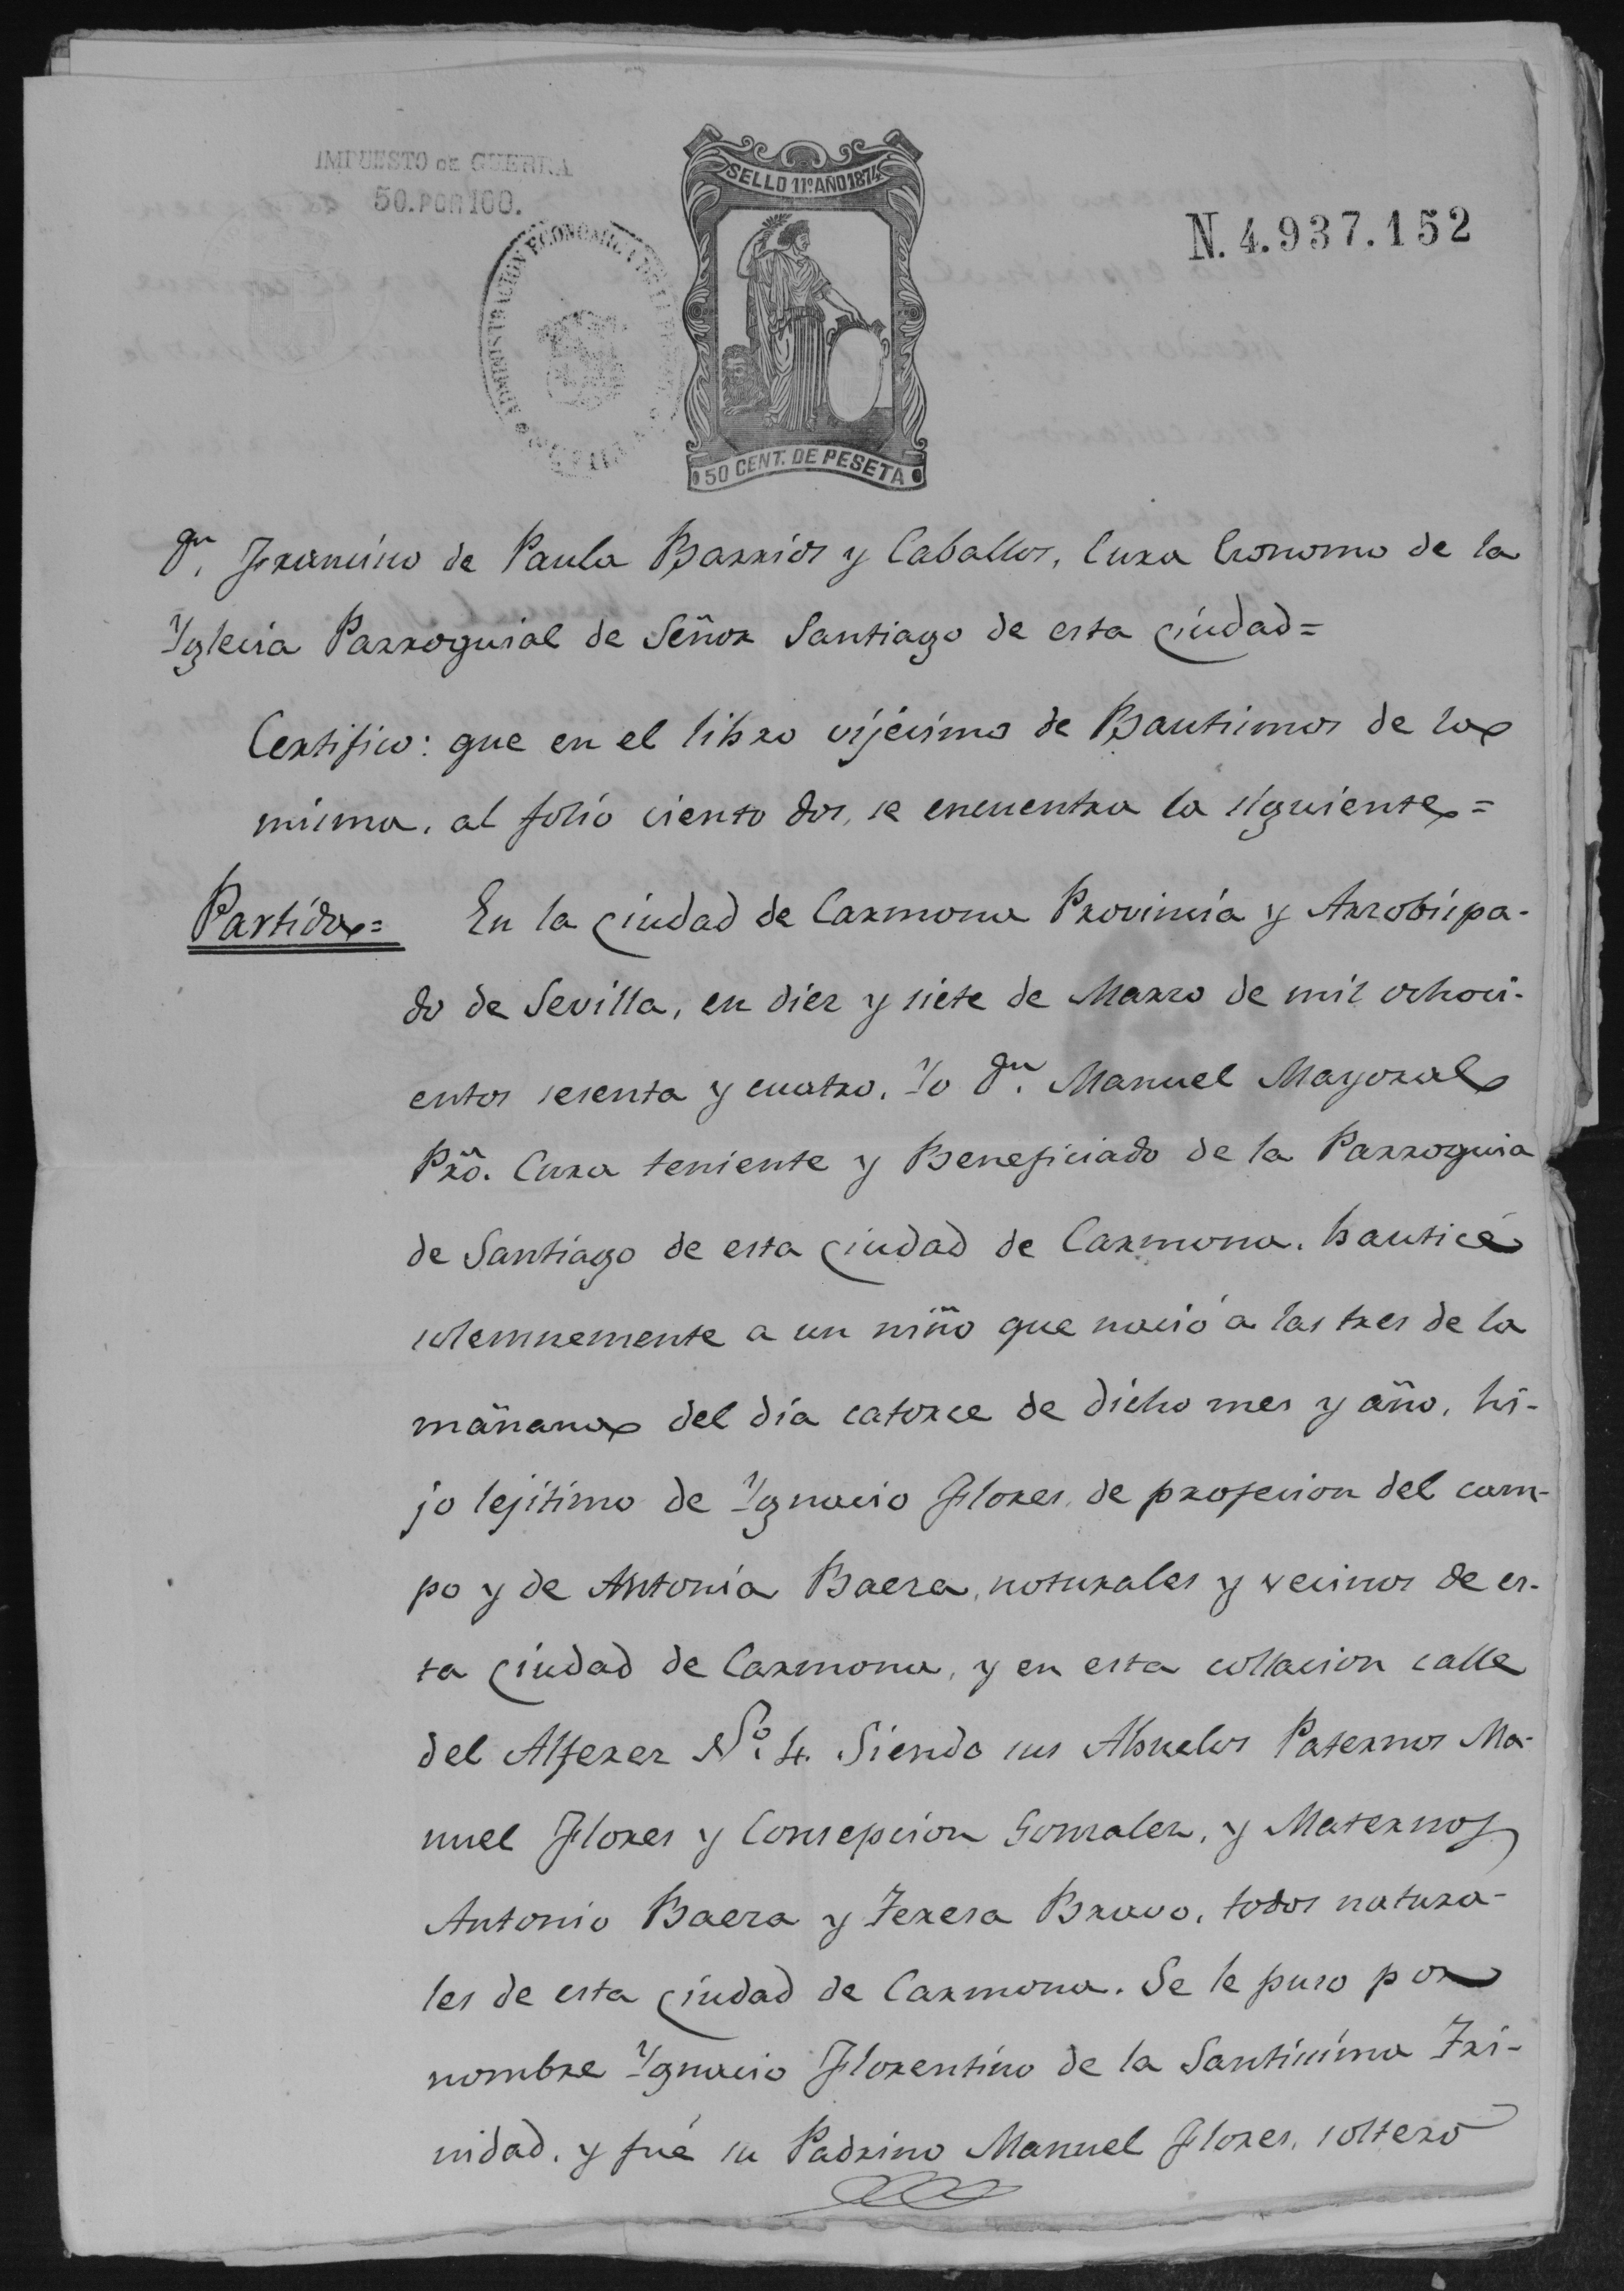 IMPUESTO DE GUERRA
50.POR 100.
ADMINISTRACION ECONOMICA
SELLO 11º AÑO 1874
50 CENT. DE PESETA
N. 4.937.152
Dn. Francisco de Paula Barrios y Caballos, Cura Economo de la
Yglecia Parroquial de Señor Santiago de esta ciudad=
Certifico: que en el libro vijécimo de Bautismos de la
misma, al folio ciento dos, se encuentra la siguiente=
Partida= En la ciudad de Carmona Provincia y Arzobispa-
do de Sevilla, en diez y siete de Marzo de mil ochoci-
entos sesenta y cuatro. Yo Dn. Manuel Mayoral
Pro. Cura teniente y Beneficiado de la Parroquia
de Santiago de esta ciudad de Carmona, bauticé
solemnemente a un niño que nació a las tres de la
mañana del día catorce de dicho mes y año, hi-
jo lejitimo de Ygnacio Flores, de profecion del cam-
po y de Antonia Baeza, naturales y vecinos de es-
ta ciudad de Carmona, y en esta collacion calle
del Alferez Nº. 4. Siendo sus Abuelos Paternos Ma-
nuel Flores y Concepcion Gonzalez, y Maternos
Antonio Baeza y Teresa Bravo, todos natura-
les de esta ciudad de Carmona. Se le puso por
nombre Ygnacio Florentino de la Santicima Tri-
nidad, y fué su Padrino Manuel Flores, soltero